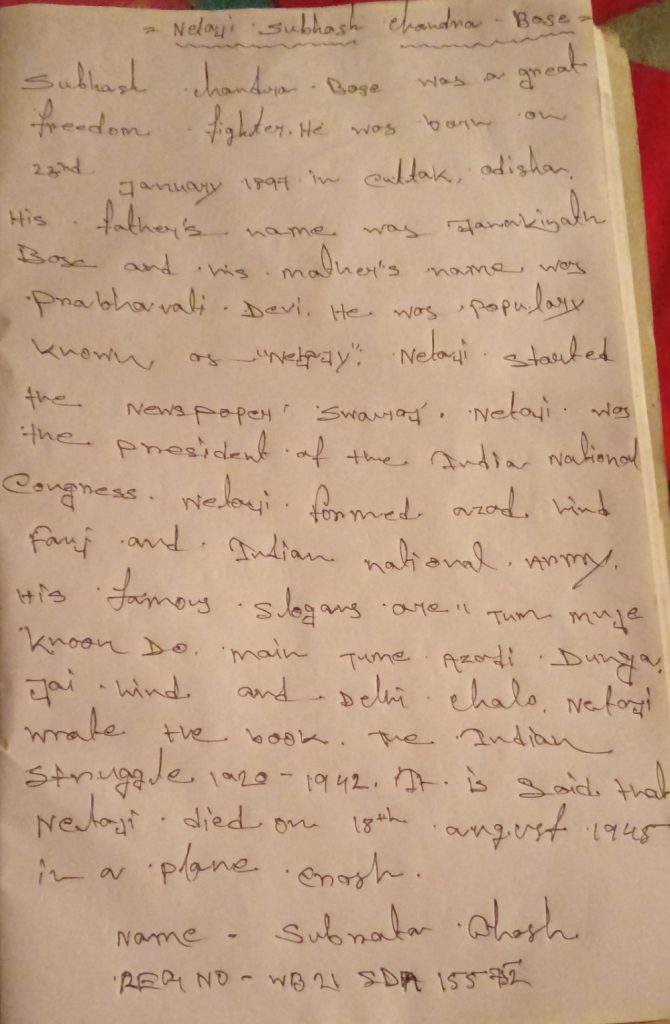 = Netaji Subhash Chandra Bose =
Subhash Chandra Bose was a great
freedom fighter. He was born on
23nd January 1897 in Cuttak, odisha.
His father's name was Janakinath
Bose and his mother's name was
Prabhavati Devi. He was populary
known as "Netajy". Netaji started
the Newspaper 'Swaraj'. Netaji was
the president of the India National
Congress. Netaji formed azad hind
Fauj and Indian national Army.
His famous slogans are " Tum muje
Khoon Do. main Tume Azadi Dunga,
Jai hind and Delhi chalo. Netaji
wrote the book. The Indian
Struggle 1920-1942. It is said that
Netaji died on 18th august 1945
in a plane crash.
Name - Subrata Ghosh
REG NO - WB21 SDA 155